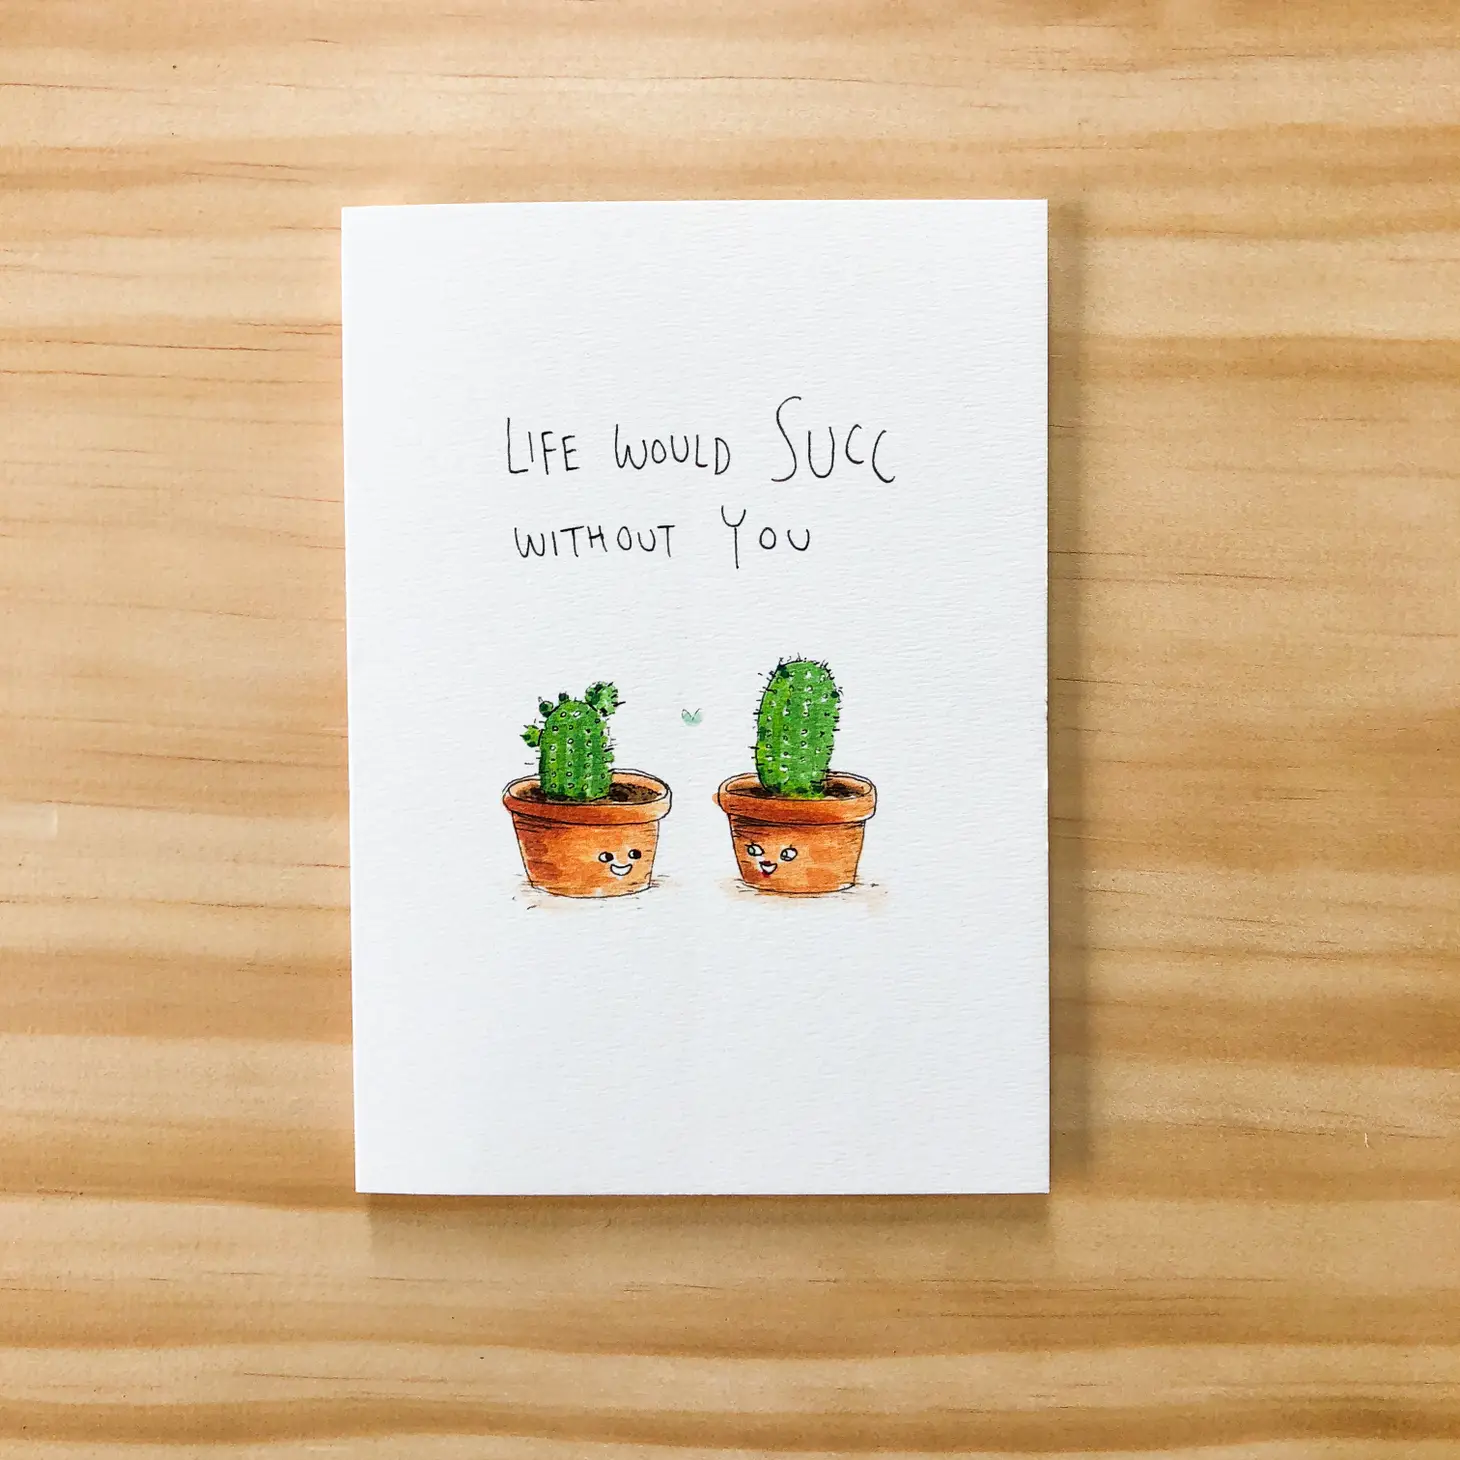 LIFE WOULD SUCC
WITHOUT YOU